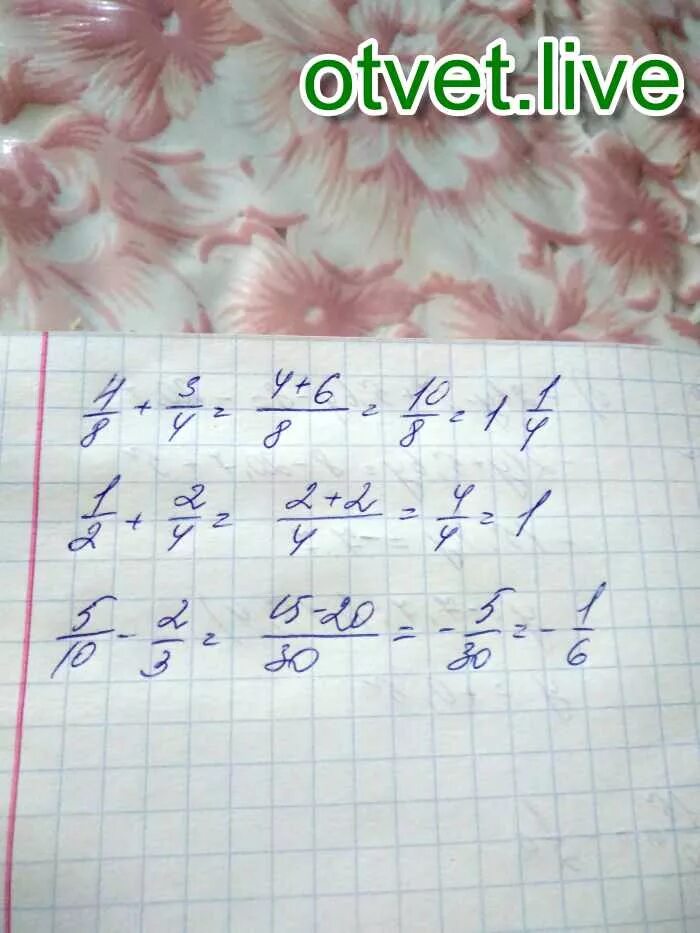 otvet.live
4/8 + 3/4 = (4+6)/8 = 10/8 = 1 1/4
1/2 + 2/4 = (2+2)/4 = 4/4 = 1
5/10 - 2/3 = (15-20)/30 = -5/30 = -1/6